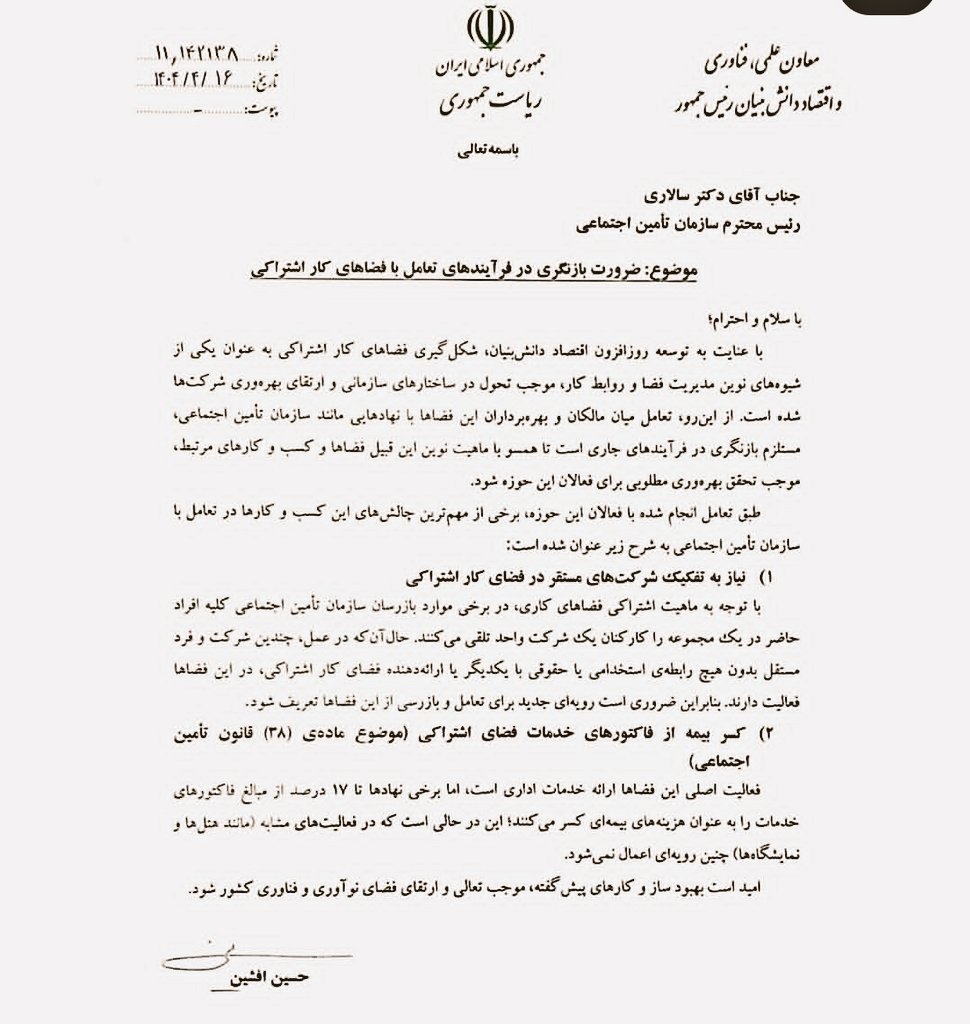 جمهوری اسلامی ایران
ریاست جمهوری
معاون علمی، فناوری
و اقتصاد دانش‌بنیان رئیس جمهور
شماره: ۱۱,۱۴۲۱۳۸
تاریخ: ۱۴۰۴/۴/۱۶
پیوست: -
باسمه تعالی
جناب آقای دکتر سالاری
رئیس محترم سازمان تأمین اجتماعی
موضوع: ضرورت بازنگری در فرآیندهای تعامل با فضاهای کار اشتراکی
با سلام و احترام؛
با عنایت به توسعه روزافزون اقتصاد دانش‌بنیان، شکل‌گیری فضاهای کار اشتراکی به عنوان یکی از
شیوه‌های نوین مدیریت فضا و روابط کار، موجب تحول در ساختارهای سازمانی و ارتقای بهره‌وری شرکت‌ها
شده است. از این‌رو، تعامل میان مالکان و بهره‌برداران این فضاها با نهادهایی مانند سازمان تأمین اجتماعی،
مستلزم بازنگری در فرآیندهای جاری است تا همسو با ماهیت نوین این قبیل فضاها و کسب و کارهای مرتبط،
موجب تحقق بهره‌وری مطلوبی برای فعالان این حوزه شود.
طبق تعامل انجام شده با فعالان این حوزه، برخی از مهم‌ترین چالش‌های این کسب و کارها در تعامل با
سازمان تأمین اجتماعی به شرح زیر عنوان شده است:
۱) نیاز به تفکیک شرکت‌های مستقر در فضای کار اشتراکی
با توجه به ماهیت اشتراکی فضاهای کاری، در برخی موارد بازرسان سازمان تأمین اجتماعی کلیه افراد
حاضر در یک مجموعه را کارکنان یک شرکت واحد تلقی می‌کنند. حال‌آن‌که در عمل، چندین شرکت و فرد
مستقل بدون هیچ رابطه‌ی استخدامی یا حقوقی با یکدیگر یا ارائه‌دهنده فضای کار اشتراکی، در این فضاها
فعالیت دارند. بنابراین ضروری است رویه‌ای جدید برای تعامل و بازرسی از این فضاها تعریف شود.
۲) کسر بیمه از فاکتورهای خدمات فضای اشتراکی (موضوع ماده‌ی (۳۸) قانون تأمین
اجتماعی)
فعالیت اصلی این فضاها ارائه خدمات اداری است، اما برخی نهادها تا ۱۷ درصد از مبالغ فاکتورهای
خدمات را به عنوان هزینه‌های بیمه‌ای کسر می‌کنند؛ این در حالی است که در فعالیت‌های مشابه (مانند هتل‌ها و
نمایشگاه‌ها) چنین رویه‌ای اعمال نمی‌شود.
امید است بهبود ساز و کارهای پیش‌گفته، موجب تعالی و ارتقای فضای نوآوری و فناوری کشور شود.
حسین افشین